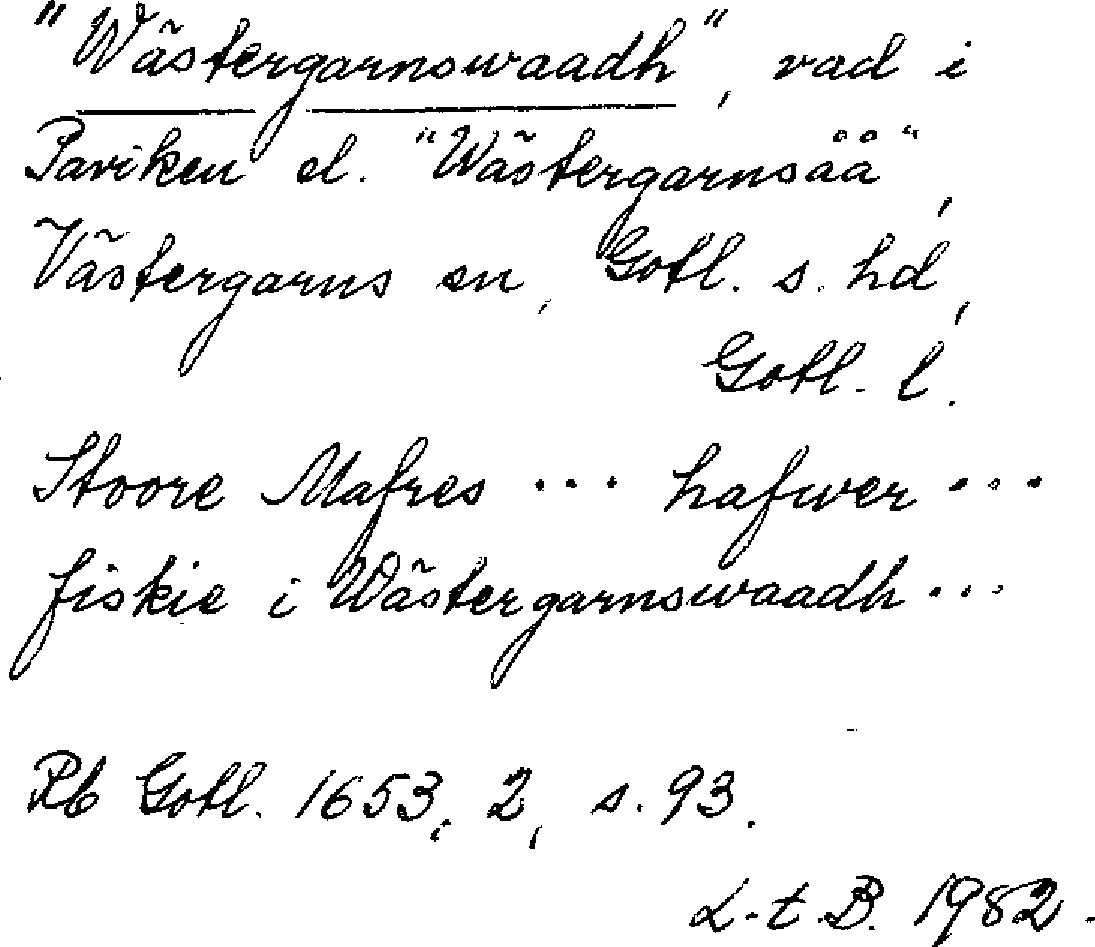 "Wästergarnswaadh", vad i
Paviken el. "Wästergarnsåå",
Västergarns sn, Gotl. s. hd,
Gotl. l.
Stoore Mafres ... hafwer ...
fiskie i Wästergarnswaadh ...
Rb Gotl. 1653, 2, s. 93.
L-t B. 1982.